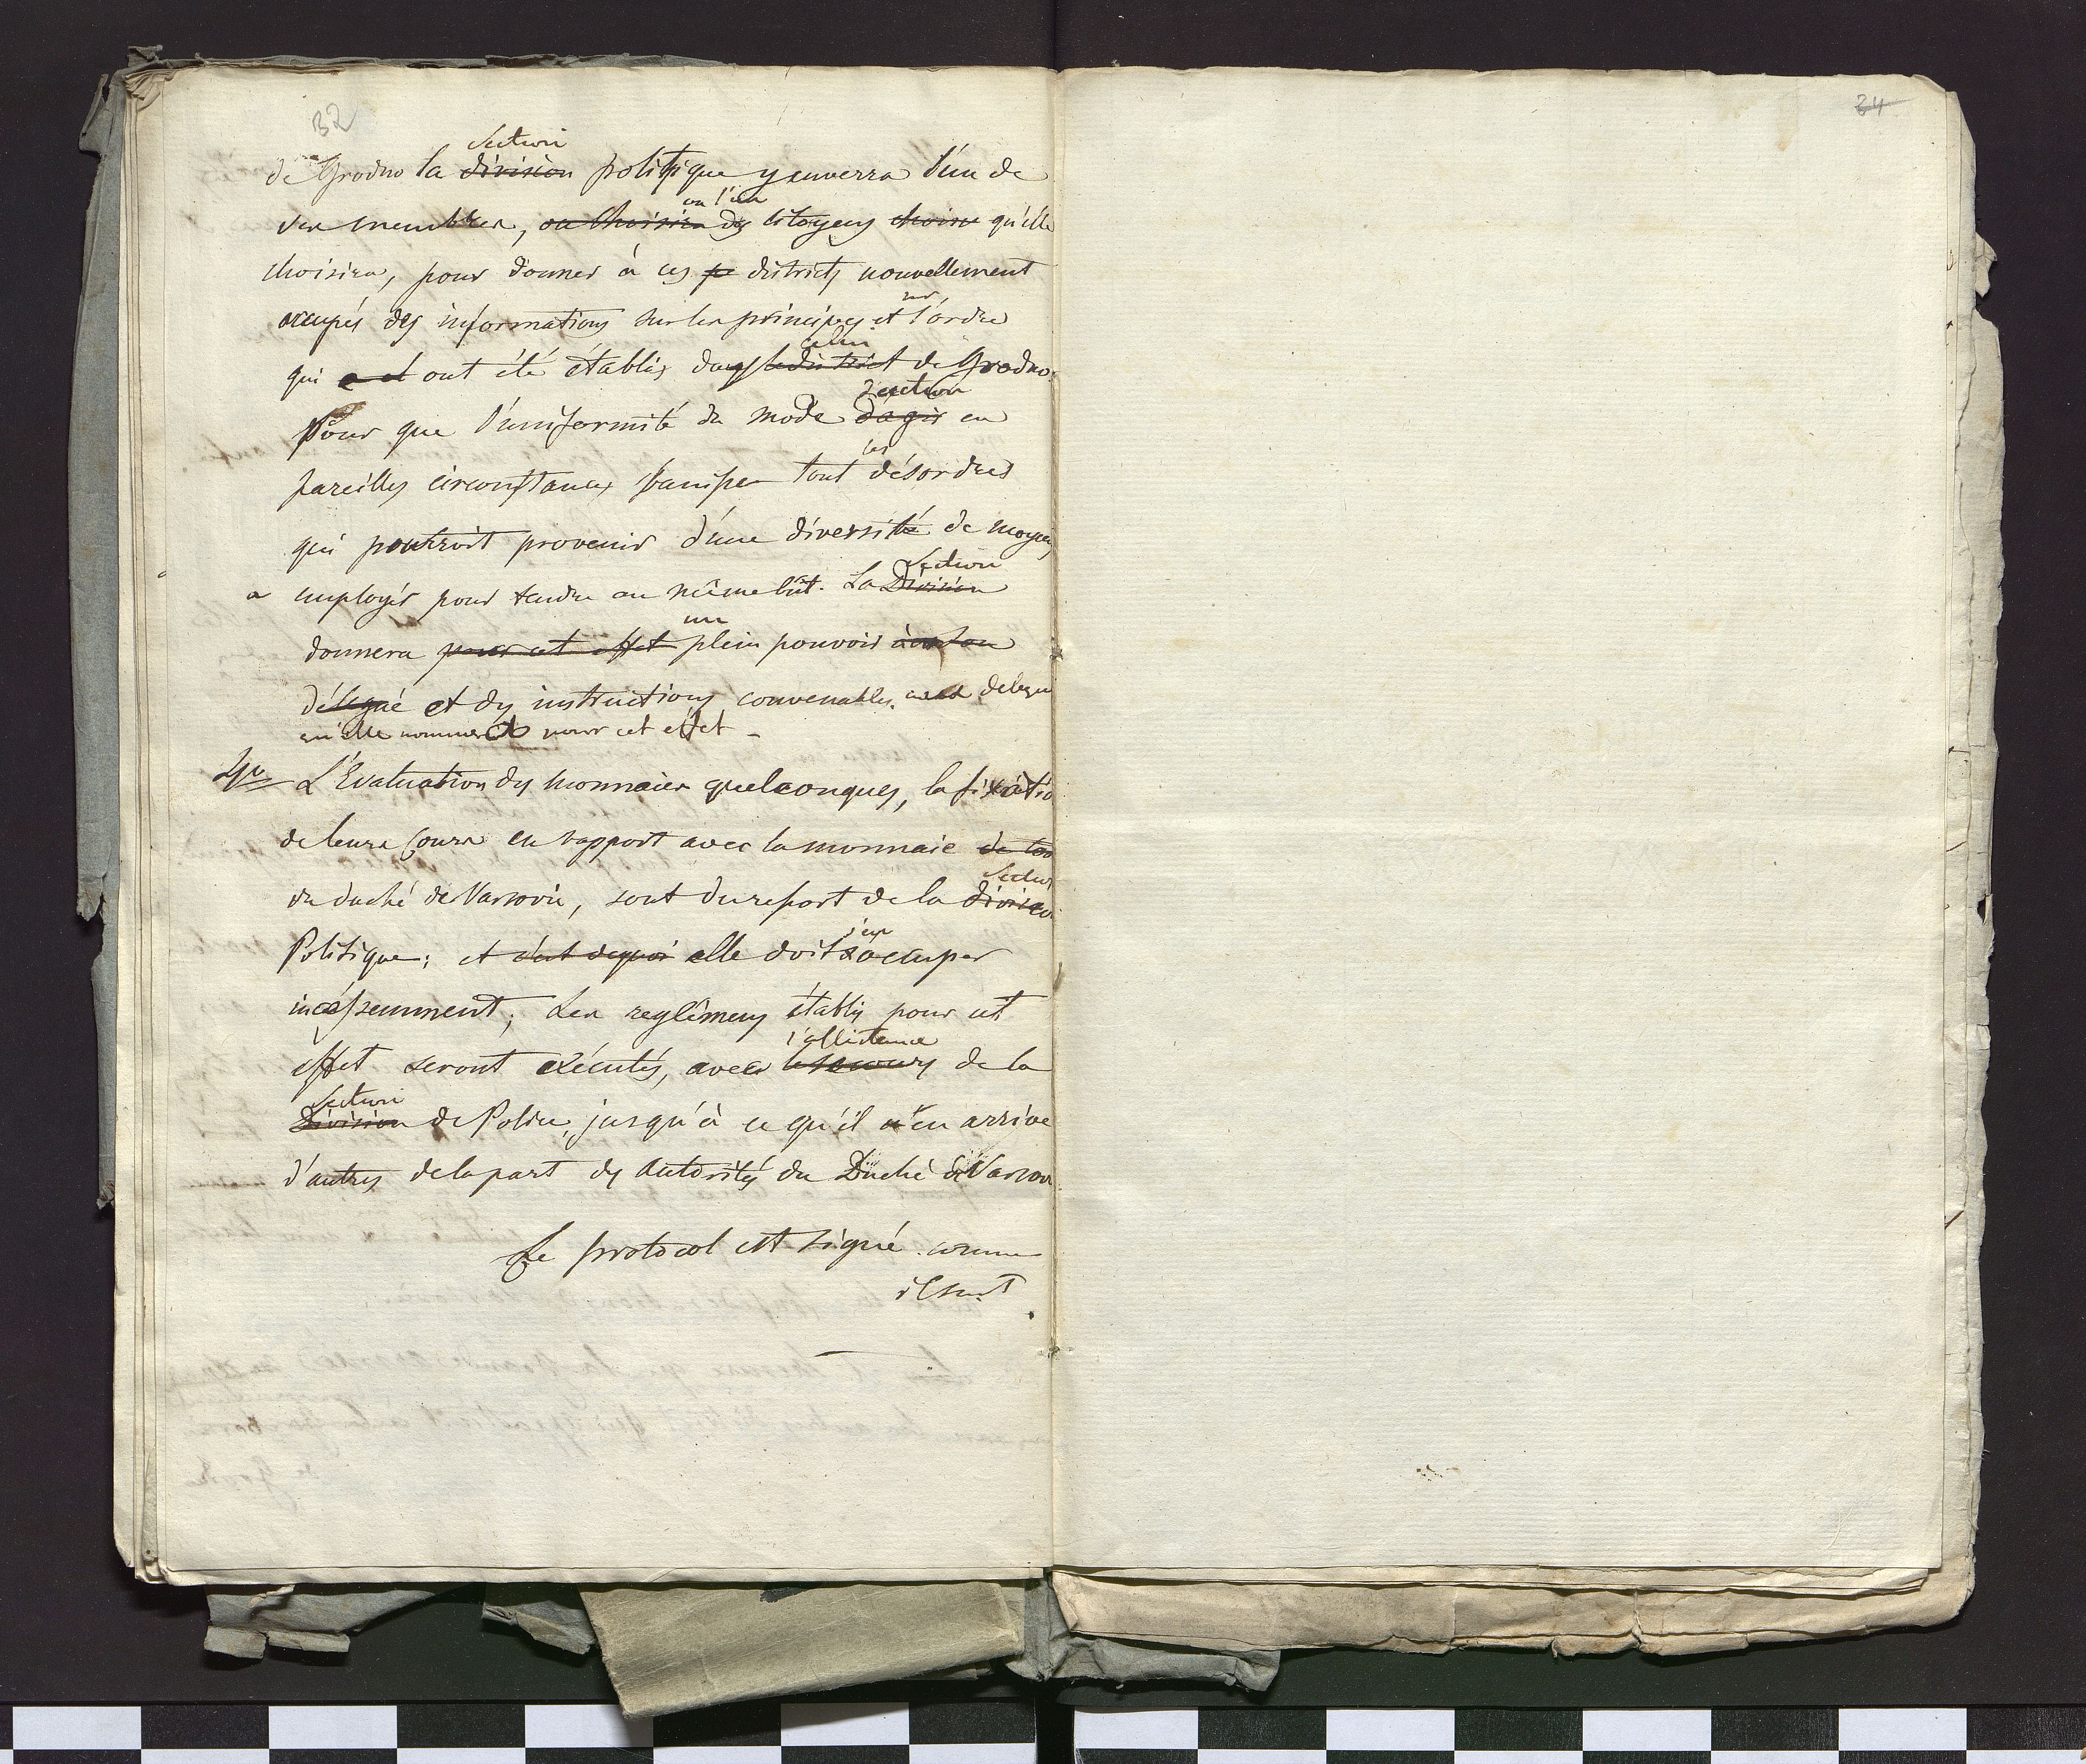 32
34
Section
de Grodno la division politique y enverra l'un de
ou l'un
ses membres, ou choisira des citoyens choisi qu'elle
choisira, pour donner à ces districts nouvellement
sur
occupés des informations sur les principes et l'ordre
celui
qui ont été établis dans le district de Grodno.
d'action
Pour que l'uniformité du mode d'agir en
les
pareilles circonstances tout désordres
qui pourroit provenir d'une diversité de moyens
a employés pour tendre au même bût. La Division
Section
un
donnera pour cet effet plein pouvoir à son
délégué et des instructions convenables delegué
qu'elle nommera pour cet effet -
L'Evaluation des monnaies quelconques, la fixatio
de leurs cours en rapport avec la monnaie
Section
du duché de Varsovie, sont du resort de la division
s'en
Politique; et c'est dequoi elle doit s'occuper
incéssemment; Les reglèmens établis pour cet
l'assistance
effet seront exécutés, avec le secours de la
Section
Division de Police, jusqu'à ce qu'il n'en arrive
d'autres de la part des Autorités du Duché de Varsov
Le protocol est signé comme
il suit